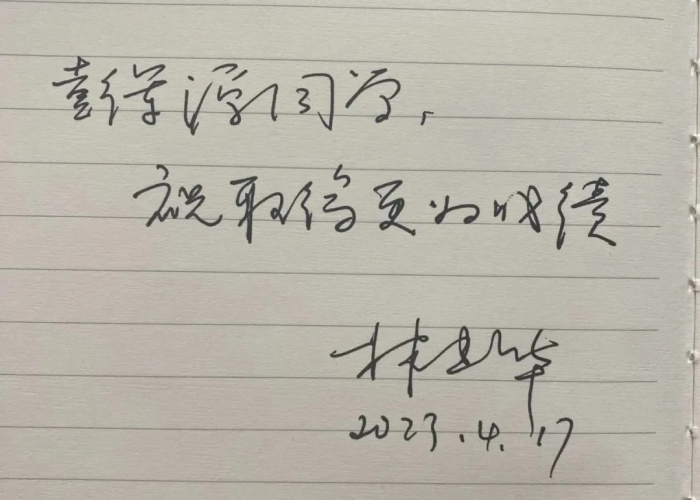 彭保源同学，
祝取得更好成绩
林建华
2023.4.17